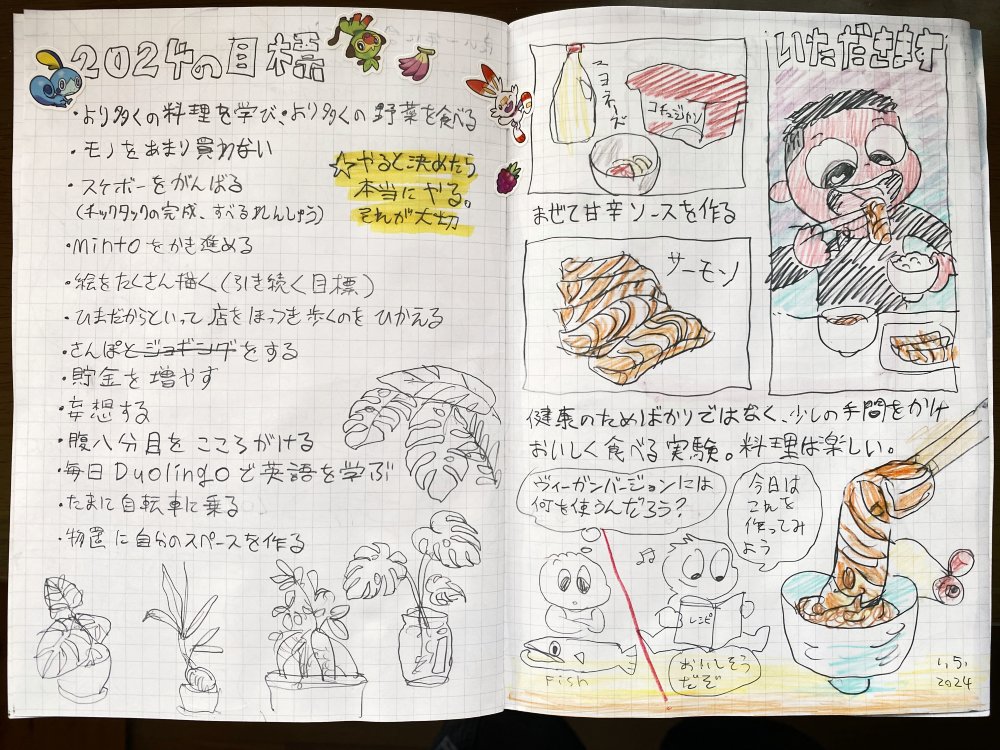 2024の目標
・より多くの料理を学び、より多くの野菜を食べる
・モノをあまり買わない
・スケボーをがんばる
(チックタックの完成、すべるれんしゅう)
☆やると決めたら
本当にやる。
それが大切
・Mintoをかき進める
・絵をたくさん描く(引き続く目標)
・ひまだからといって店をほっつき歩くのをひかえる
・さんぽとジョギングをする
・貯金を増やす
・妄想する
・腹八分目をこころがける
・毎日Duolingoで英語を学ぶ
・たまに自転車に乗る
・物置に自分のスペースを作る
マヨネーズ
コチュジャン
まぜて甘辛ソースを作る
サーモン
いただきます
健康のためばかりではなく、少しの手間をかけ
おいしく食べる実験。料理は楽しい。
ヴィーガンバージョンには
何を使うんだろう?
Fish
今日は
これを
作ってみ
よう
レシピ
おいしそう
だぞ
1.5.
2024